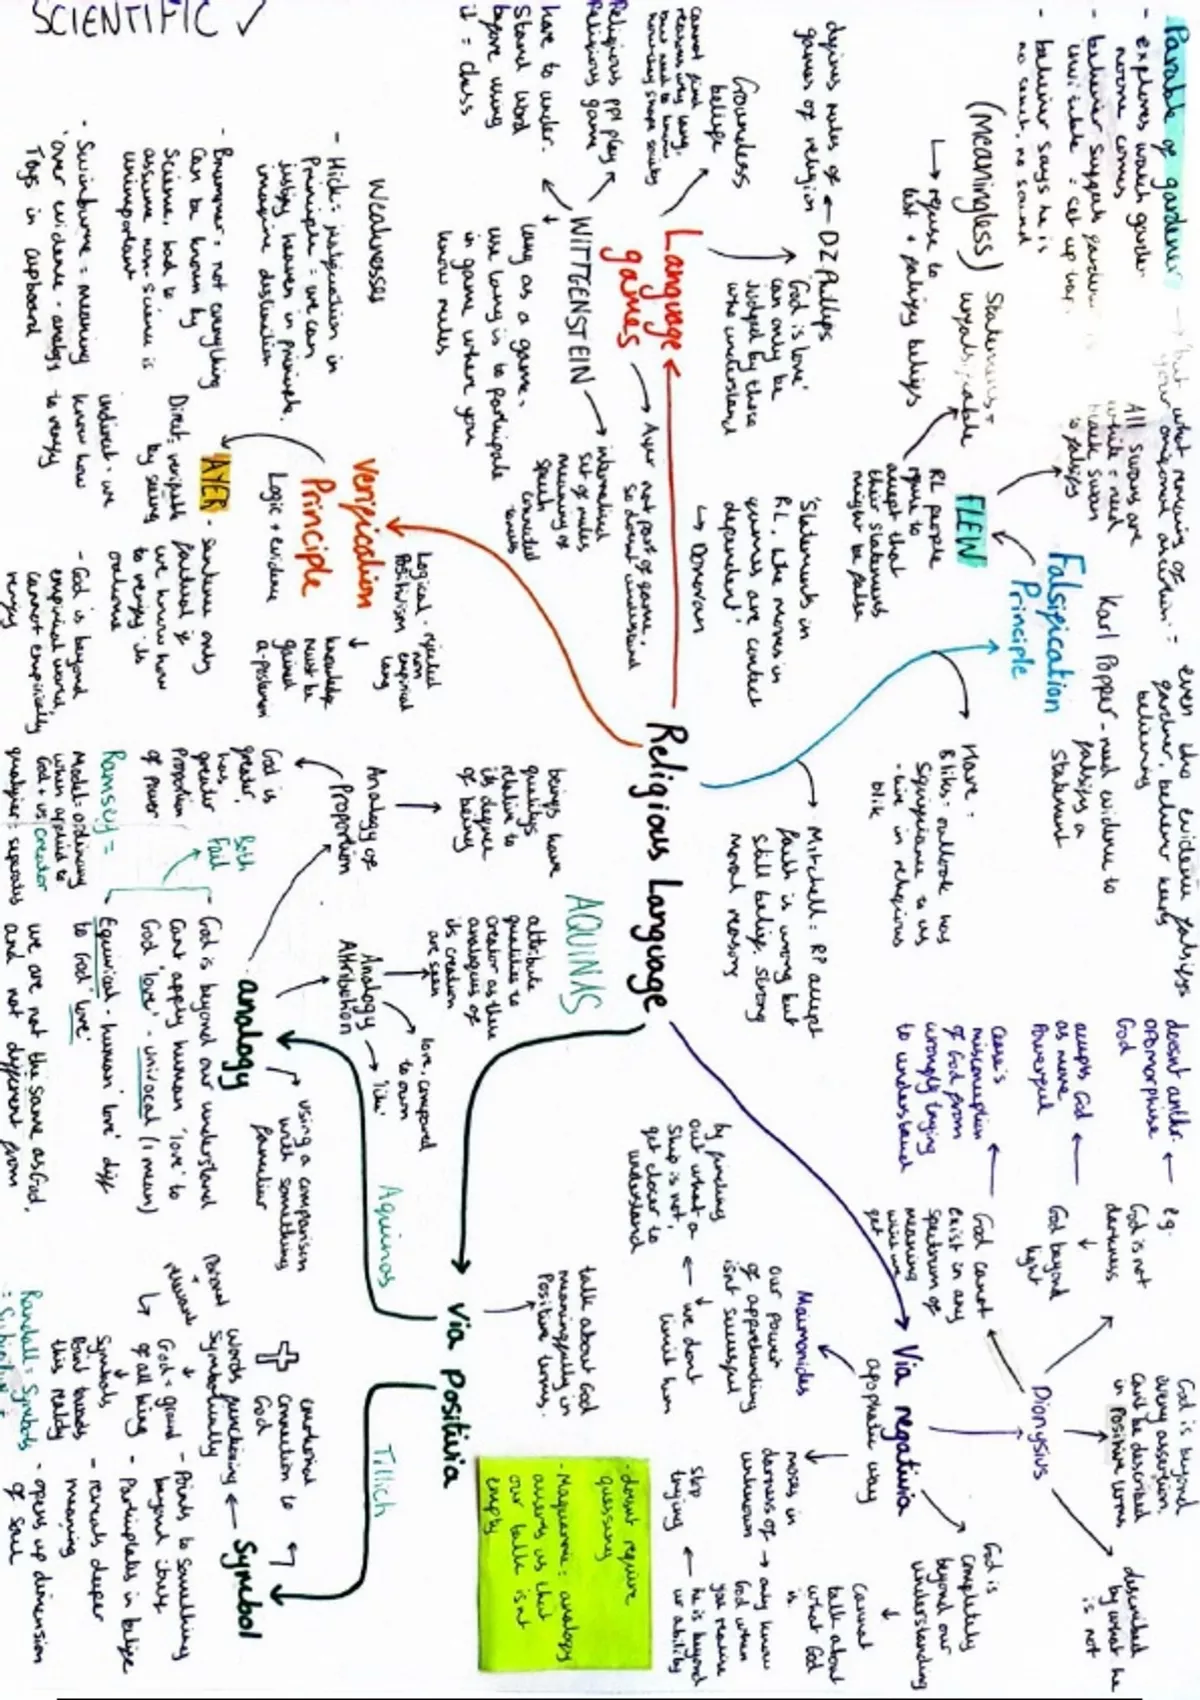 SCIENTIFIC ✓
Religious Language
Falsification
Principle
Karl Popper - need evidence to
falsify a
statement
All swans are
white = need
black swan
to falsify
Parable of gardener
- explores watch garden
noone comes
- believer says he is
no scent, no sound
even tho evidence falsifys
gardner, believer keeps
believing
FLEW
RL people
refuse to
accept that
their statements
might be false
Statements =
unfalsifiable
(meaningless)
↳ refuse to
test + falsify beliefs
Hare =
Bliks = outlook has
significance to us
- live in religious
blik
Mitchell = RP accept
faith is wrong but
still believe. strong
moral reasons
Language
games
DZ Phillips
defines rules of
games of religion
'God is love'
can only be
judged by those
who understand
Groundless
beliefs
Religious ppl play
Religious game
WITTGENSTEIN
have to under.
stand word
before using
it = chess
lang as a game =
use lang is to participate
in game where you
know rules
internalised
set of rules
meaning of
speech
Ayer not part of game,
so doesnt understand
'Statements in
RL, like moves in
games are context
dependent'
↳ Donovan
Verification
Principle
Logic + evidence
Logical
Positivism
- rejected
non
empirical
lang
knowledge
must be
gained
a-posteriori
AYER
- sentence only
factual if
we know how
to verify its
outcome
Direct = verifiable
by seeing
indirect = we
know how
to verify
- God is beyond
empirical world,
cannot empirically
verify
Weaknesses
- Hick = justification in
Principle = we can
justify heaven in principle.
imagine destination
- Brummer = not everything
can be known by
science, bad to
assume non-science is
unimportant
- Swinburne = meaning
over evidence - analogy
Toys in cupboard
AQUINAS
Via positiva
talk about God
meaningfully in
Positive terms.
Aquinas
analogy
using a comparison
with something
familiar
Analogy of
Proportion
beings have
qualitys
relative to
its degree
of being
God is
greater,
has
greater
Proportion
of Power
Analogy
Attribution
attribute
qualities to
creator as the
analogies of
its creation
are seen
love, compared
to own
God is beyond our understand
cant apply human 'love' to
God 'love' - univocal (1 mean)
Equivical - human 'love' diff
to God 'love'
Both
Fail
Ramsey =
Model = ordinary
when applied to
God + us creator
qualifier = separates
we are not the same as God,
and not different from
Tillich
Symbol
emotional
connection to
God
words functioning
symbolically
God = ground
of all being
Symbols
Point towards
this reality
- Points to something
beyond itself
- Participates in belief
- reveals deeper
meaning
- opens up dimension
of soul
Randall = Symbols
- doesnt require
guessing
- Maquarrie = analogy
assures us that
our talk isnt
empty
Via negativa
apophatic way
God is
completely
beyond our
understanding
cannot
talk about
what God
is
Maimonides
our power
of apprehending
isnt successful
we dont
limit him
by finding
out what a
ship is not,
get closer to
understand
moses in
darkness of
unknown
only know
God when
you realise
he is beyond
ur ability
stop
trying
Dionysius
God is beyond
every assertion,
cant be described
in positive terms
described
by what he
is not
eg.
God is not
darkness
God beyond
light
doesnt anthr-
opomorphise
God
accepts God
as more
Powerful
God cannot
exist in any
spectrum of
meaning
misconception
of God from
wrongly trying
to understand